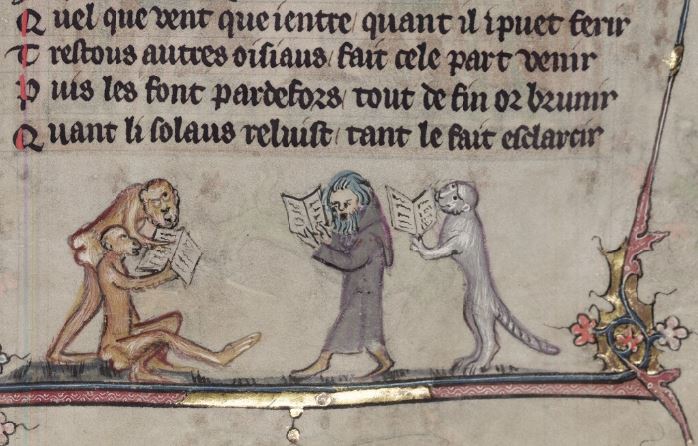 Quel que vent que ientre / quant il i puet ferir
T restous autres oisiaus / fait cele part venir
P uis les font pardefors / tout de fin or brunir
Quant li solaus reluist / tant le fait esclarcir